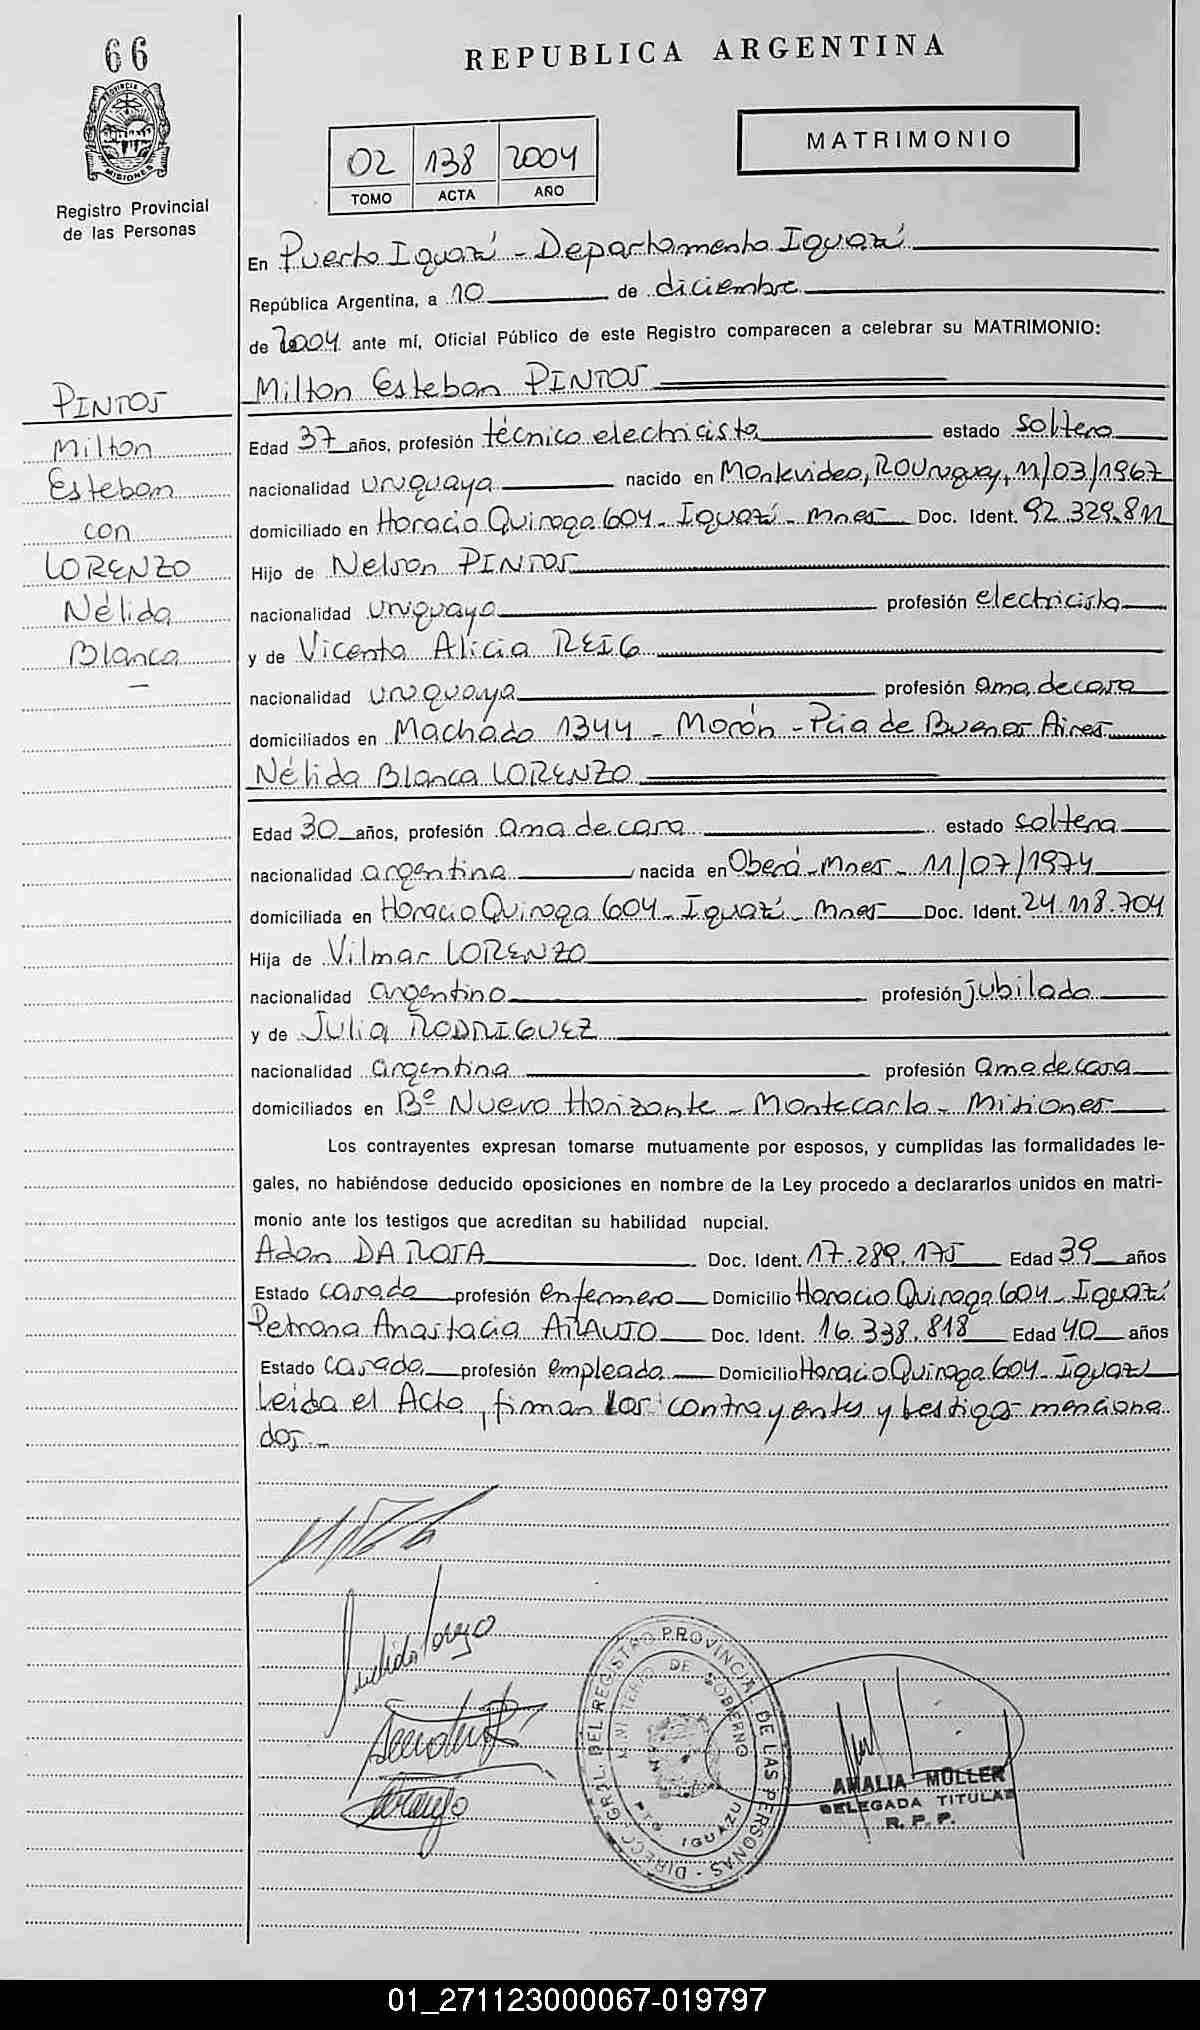 66
REPUBLICA ARGENTINA
PROVINCIA DE
MISIONES
Registro Provincial
de las Personas
02 138 2004
TOMO ACTA AÑO
MATRIMONIO
En Puerto Iguazú - Departamento Iguazú
República Argentina, a 10 de diciembre
de 2004 ante mí, Oficial Público de este Registro comparecen a celebrar su MATRIMONIO:
Milton Esteban PINTOS
PINTOS
Milton
Esteban
con
LORENZO
Nélida
Blanca
Edad 37 años, profesión técnico electricista estado soltero
nacionalidad uruguaya nacido en Montevideo, ROUruguay, 11/03/1967
domiciliado en Horacio Quiroga 604 - Iguazú - Mnes Doc. Ident. 92.329.811
Hijo de Nelson PINTOS
nacionalidad uruguaya profesión electricista
y de Vicenta Alicia REIG
nacionalidad uruguaya profesión ama de casa
domiciliados en Machado 1344 - Morón - Pcia de Buenos Aires
Nélida Blanca LORENZO
Edad 30 años, profesión ama de casa estado soltera
nacionalidad argentina nacida en Oberá - Mnes - 11/07/1974
domiciliada en Horacio Quiroga 604 - Iguazú - Mnes Doc. Ident. 24.118.704
Hija de Vilmar LORENZO
nacionalidad argentino profesión jubilado
y de Julia RODRIGUEZ
nacionalidad argentina profesión ama de casa
domiciliados en Bº Nuevo Horizonte - Montecarlo - Misiones
Los contrayentes expresan tomarse mutuamente por esposos, y cumplidas las formalidades le-
gales, no habiéndose deducido oposiciones en nombre de la Ley procedo a declararlos unidos en matri-
monio ante los testigos que acreditan su habilidad nupcial.
Adan DA ROSA Doc. Ident. 17.289.175 Edad 39 años
Estado casado profesión enfermero Domicilio Horacio Quiroga 604 - Iguazú
Petrona Anastacia ARAUJO Doc. Ident. 16.338.818 Edad 40 años
Estado casada profesión empleada Domicilio Horacio Quiroga 604 - Iguazú
Leida el Acta, firman los contrayentes y testigos menciona
dos.-
DIRECC. GRAL. DEL REGISTRO PROVINCIAL DE LAS PERSONAS
MINISTERIO DE GOBIERNO
PTO. IGUAZU
AMALIA MÜLLER
DELEGADA TITULAR
R. P. P.
01_271123000067-019797